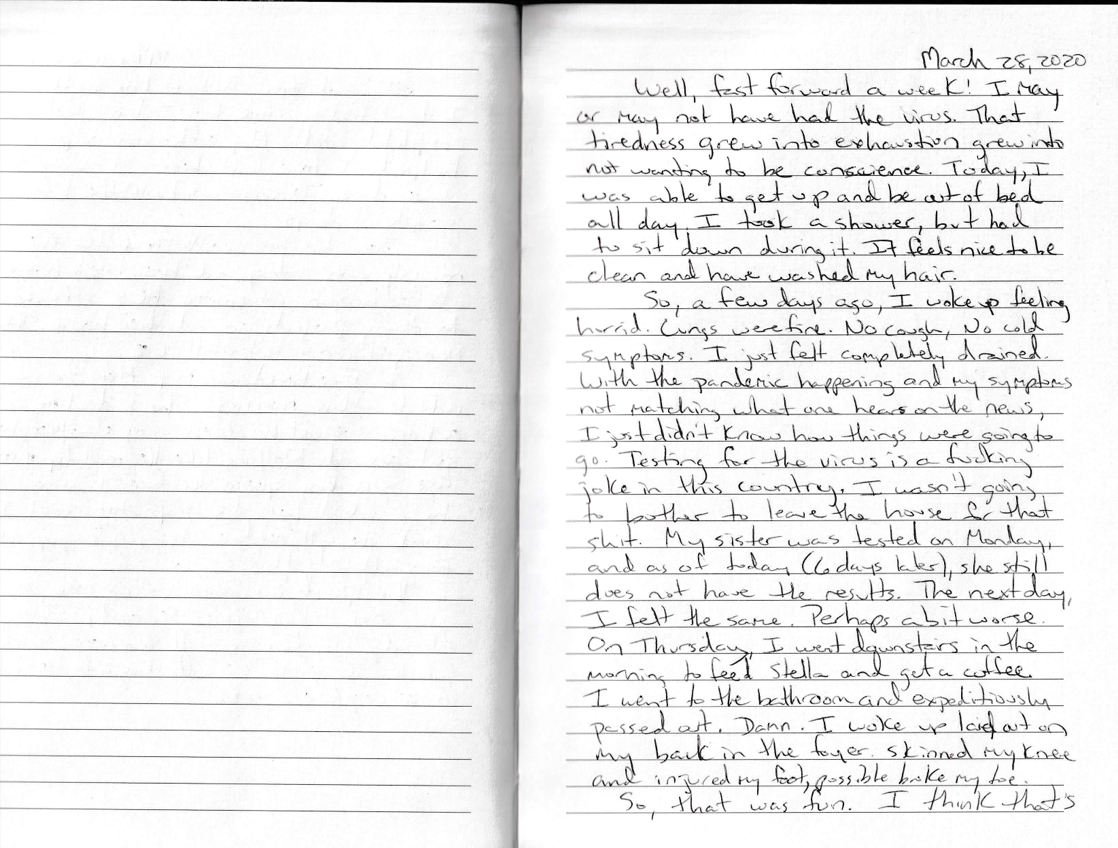 March 28, 2020
Well, fast forward a week! I may
or may not have had the virus. That
tiredness grew into exhaustion grew into
not wanting to be conscience. Today, I
was able to get up and be out of bed
all day. I took a shower, but had
to sit down during it. It feels nice to be
clean and have washed my hair.
So, a few days ago, I woke up feeling
horrid. Lungs were fine. No cough, No cold
symptoms. I just felt completely drained.
With the pandemic happening and my symptoms
not matching what one hears on the news,
I just didn't know how things were going to
go. Testing for the virus is a fucking
joke in this country. I wasn't going
to bother to leave the house for that
shit. My sister was tested on Monday,
and as of today (6 days later), she still
does not have the results. The next day,
I felt the same. Perhaps a bit worse.
On Thursday, I went downstairs in the
morning to feed Stella and get a coffee.
I went to the bathroom and expeditiously
passed out. Damn. I woke up laid out on
my back in the foyer. Skinned my knee
and injured my foot, possible broke my toe.
So, that was fun. I think that's